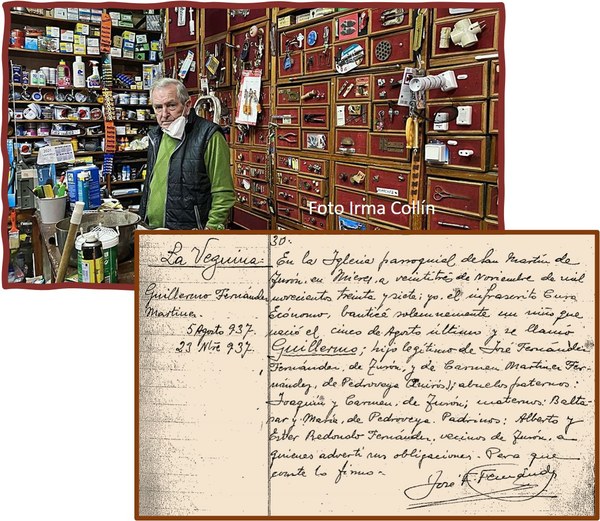 Foto Irma Collín
La Veguina=
Guillermo Fernández
Martínez
5 Agosto 937.
23 Nbre 937.
30=
En la Iglesia parroquial de San Martín de
Turón, en Mieres, a veintitrés de Noviembre de mil
novecientos treinta y siete; yo, el infrascrito Cura
Ecónomo, bauticé solemnemente un niño que
nació el cinco de Agosto último y se llamó
Guillermo; hijo legítimo de José Fernández
Fernández, de Turón, y de Carmen Martínez Fer-
nández, de Pedroveya (Quirós); abuelos paternos:
Joaquín y Carmen, de Turón; maternos: Balta-
sar y María, de Pedroveya. Padrinos: Alberto y
Ester Redondo Fernández, vecinos de Turón, a
quienes advertí sus obligaciones. Para que
conste lo firmo=
José F. Fernández